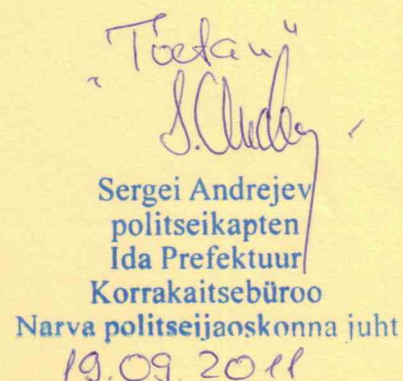 "Toetan"
S. Andrejev
Sergei Andrejev
politseikapten
Ida Prefektuur
Korrakaitsebüroo
Narva politseijaoskonna juht
19.09.2011